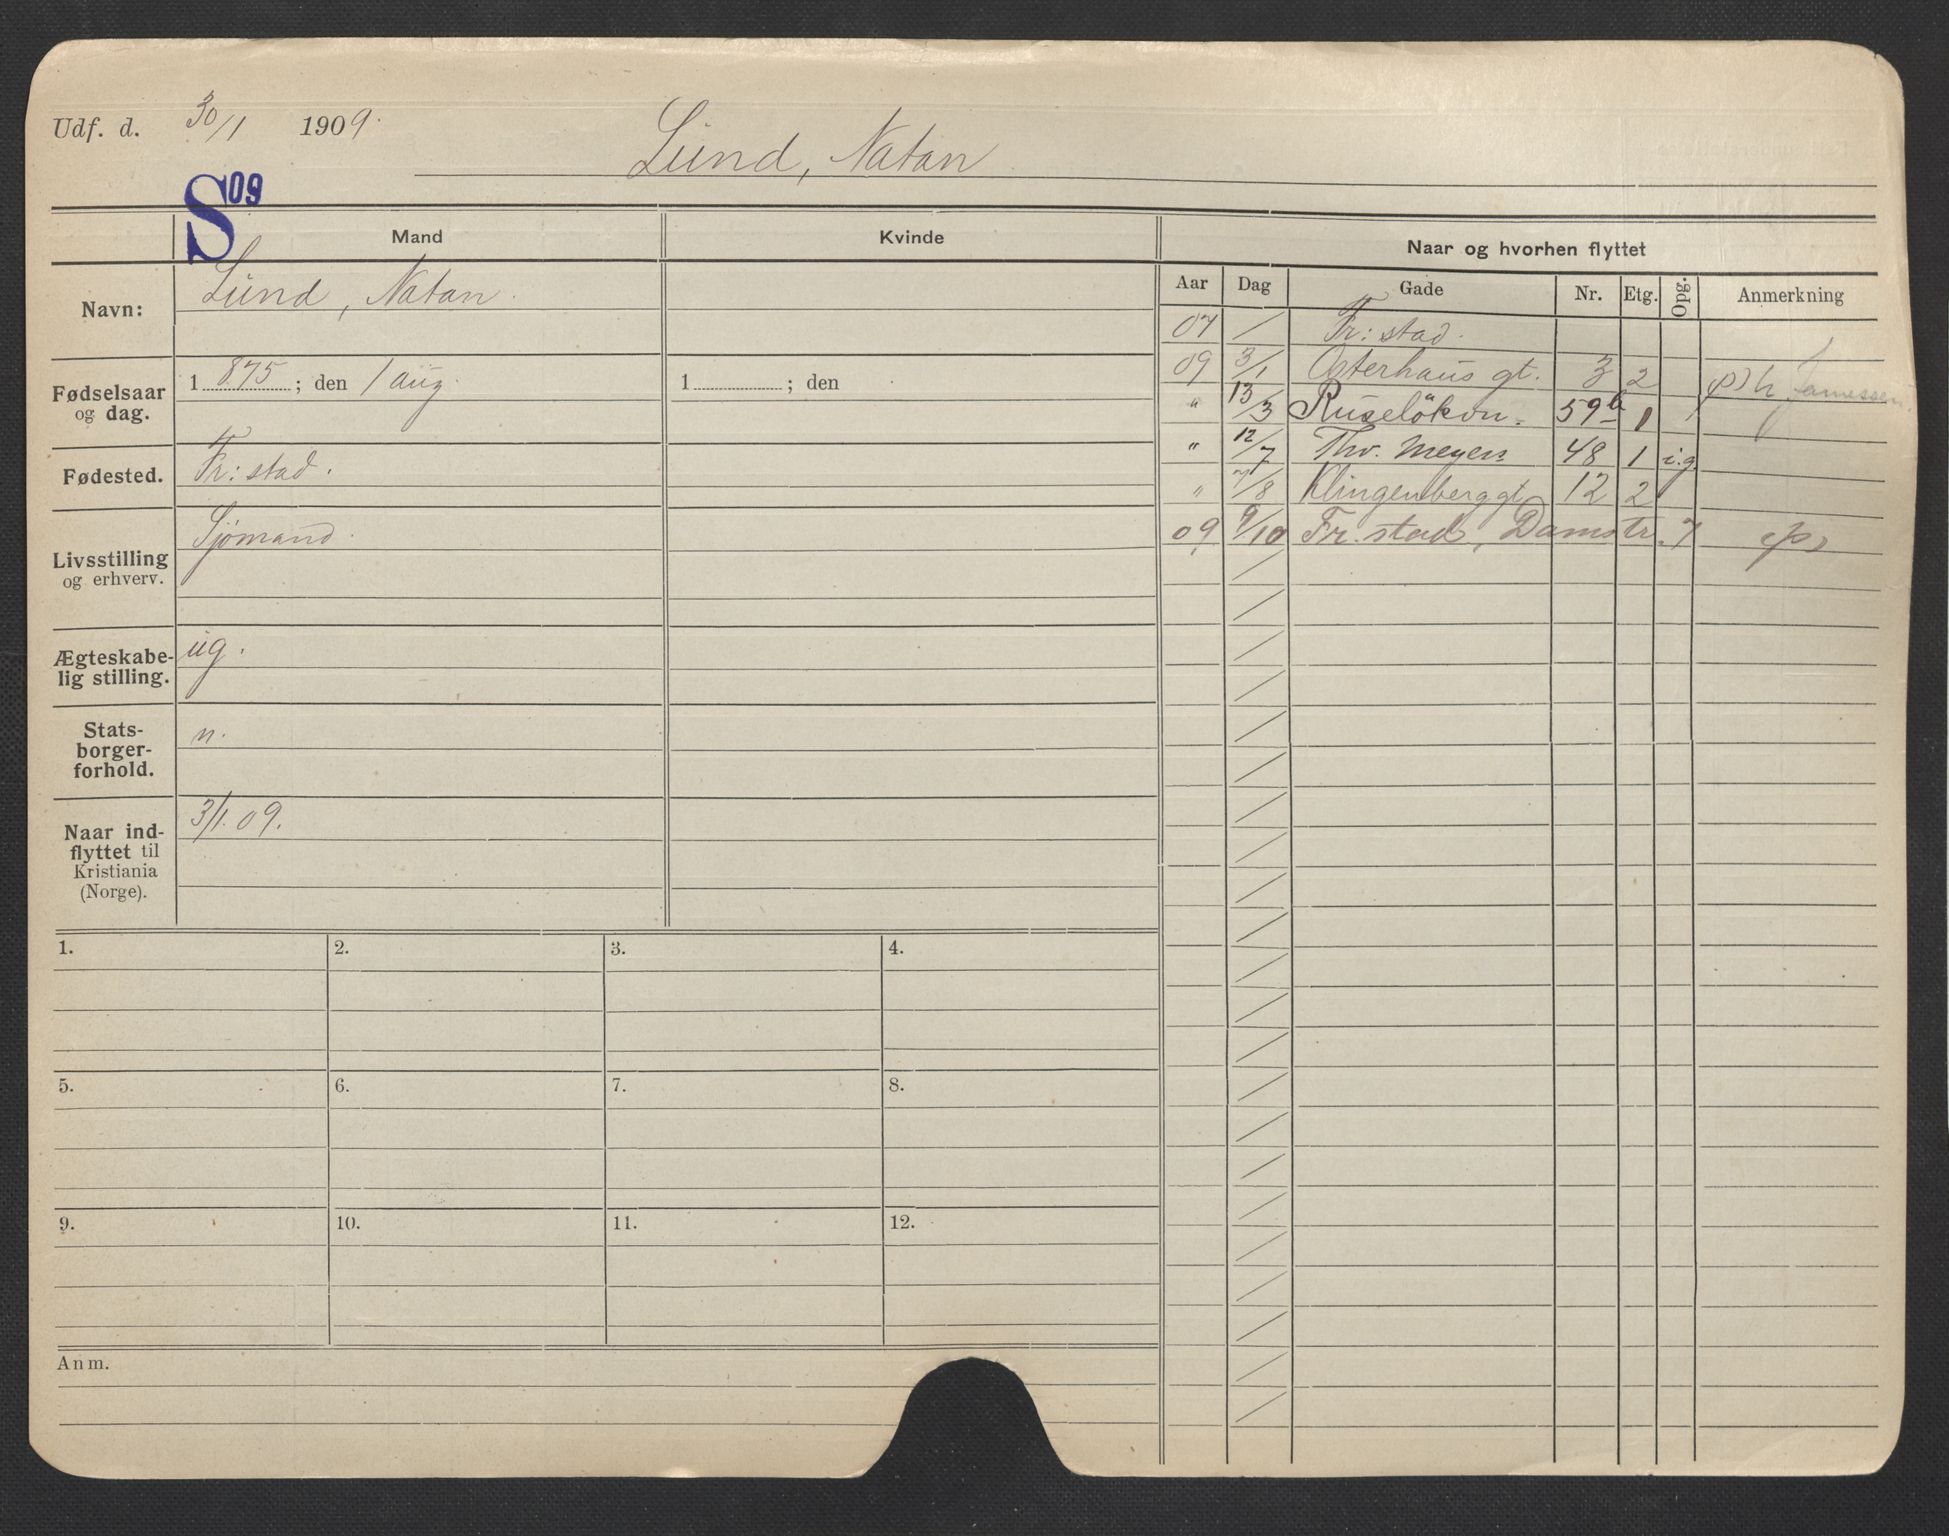 Udf. d. 30/1 1909.
Lund, Natan
S09
Mand Kvinde Naar og hvorhen flyttet
Navn: Lund, Natan.
Fødselsaar og dag. 1875; den 1 aug. 1 ; den
Fødested. Fr:stad.
Livsstilling og erhverv. Sjømand.
Ægteskabe-
lig stilling. ug.
Stats-
borger-
forhold. n.
Naar ind-
flyttet til
Kristiania
(Norge). 3/1.09.
Aar Dag Gade Nr. Etg. Opg. Anmerkning
07 / Fr:stad.
09 3/1 Osterhaus gt. 3 2
" 13/3 Ruseløkvn. 59b 1
" 12/7 Thv. Meyers 48 1 i.g.
" 7/8 Klingenberggt 12 2
09 9/10 Fr.stad, Damstr. 7
1. 2. 3. 4.
5. 6. 7. 8.
9. 10. 11. 12.
Anm.